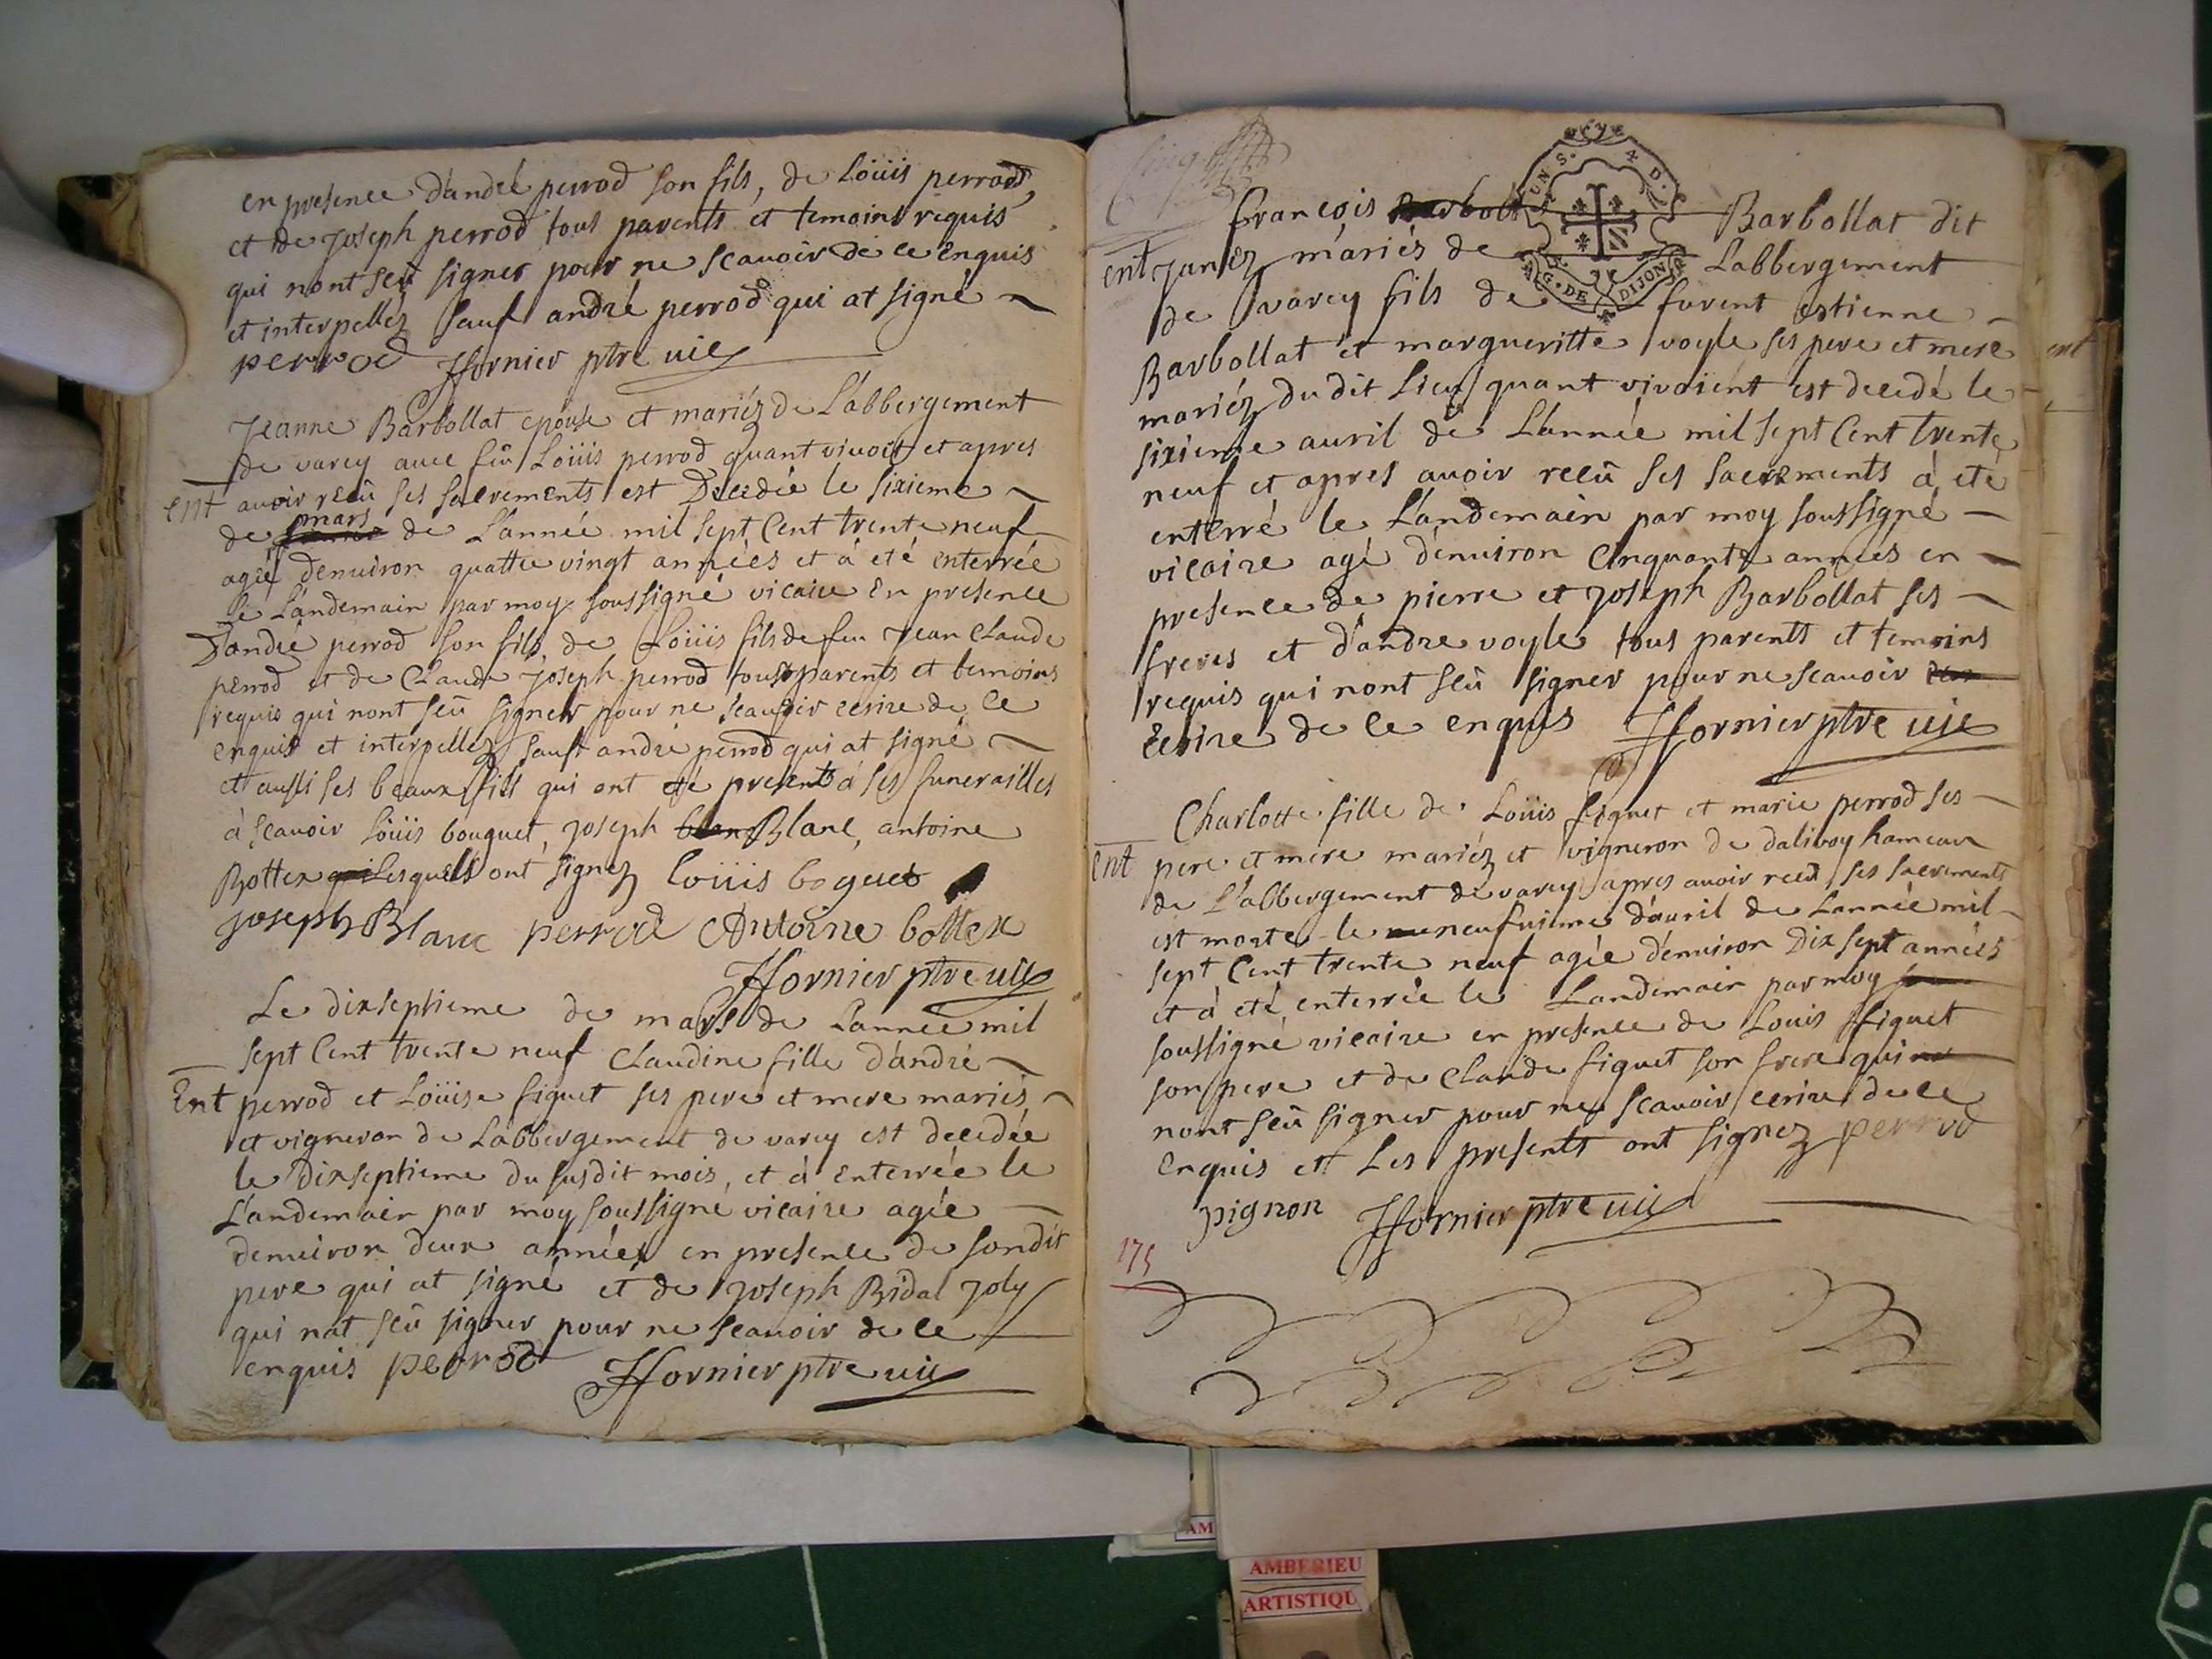 en presence d'andré perrod son fils, de Loüis perrod,
et de joseph perrod tous parents et temoins requis
qui nont seü signer pour ne scauoir de ce enquis
et interpelléz sauf andré perrod qui at signé
perrod ffornier ptre uic
Jeanne Barbollat epouse et mariéz de L'abbergement
de varey auec feü Loüis perrod quant viuoit et apres
ent auoir reçû ses sacrements est Decedée le sixieme
mars
de de L'année mil sept Cent trente neuf
agée d'enuiron quattre vingt années et à eté enterrée
le L'andemain par moy soussigné vicaire En presence
D'andré perrod son fils, de Loüis fils de feu Jean Claude
perrod et de Claude joseph perrod tous parents et temoins
requis qui nont seü signer pour ne scauoir ecrire de ce
enquis et interpelléz sauf andré perrod qui at signé
et aussi ses beaux fils qui ont eté presents à ses funerailles
à scauoir Loüis bouquet, joseph Blanc, antoine
Bottex qui Lesquels ont signéz loüis boguet
joseph Blanc perrod Antoine bottex
ffornier ptre uic
Le dixseptieme de mars de L'année mil
sept Cent trente neuf Claudine fille d'andré
Ent perrod et Loüise figuet ses pere et mere mariés
et vigneron de Labbergement de varey est decedée
le dixseptieme du susdit mois, et à enterrée le
L'andemain par moy soussigné vicaire agée
denuiron deux années en presence de sondit
pere qui at signé et de joseph Bidal joly
qui nat seü signer pour ne scauoir de ce
enquis perrod ffornier ptre uic
francois Barbollat Barbollat dit
UNS. 4 D.
G. DE DIJON
ent mariés de Labbergement
de varey fils de furent estienne
Barbollat et margueritte voyle ses pere et mere
mariéz du dit Lieu quant vivoient est decedé le
sixieme auril de L'année mil sept Cent trente
neuf et apres auoir reçû ses sacrements à eté
enterré le L'andemain par moy soussigné
vicaire agé d'enuiron Cinquante années en
presence de pierre et joseph Barbollat ses
freres et d'andre voyle tous parents et temoins
requis qui nont seü signer pour ne scauoir
Ecrire de ce enquis ffornier ptre uic
Charlotte fille de Loüis figuet et marie perrod ses
ent pere et mere mariéz et vigneron de dalivoy hameau
de L'abbergement de varey apres auoir reçû ses sacrements
est morte le neufuieme d'auril de L'année mil
sept Cent trente neuf agée d'enuiron Dix sept années
et à eté enterrée le Landemain par moy
soussigné vicaire en presence de Louis ffiguet
son pere et de Claude figuet son frere qui
nont seü signer pour ne scauoir ecrire de ce
enquis et Les presents ont signéz perrod
pignon ffornier ptre uic
175
ent
AM
AMBERIEU
ARTISTIQU